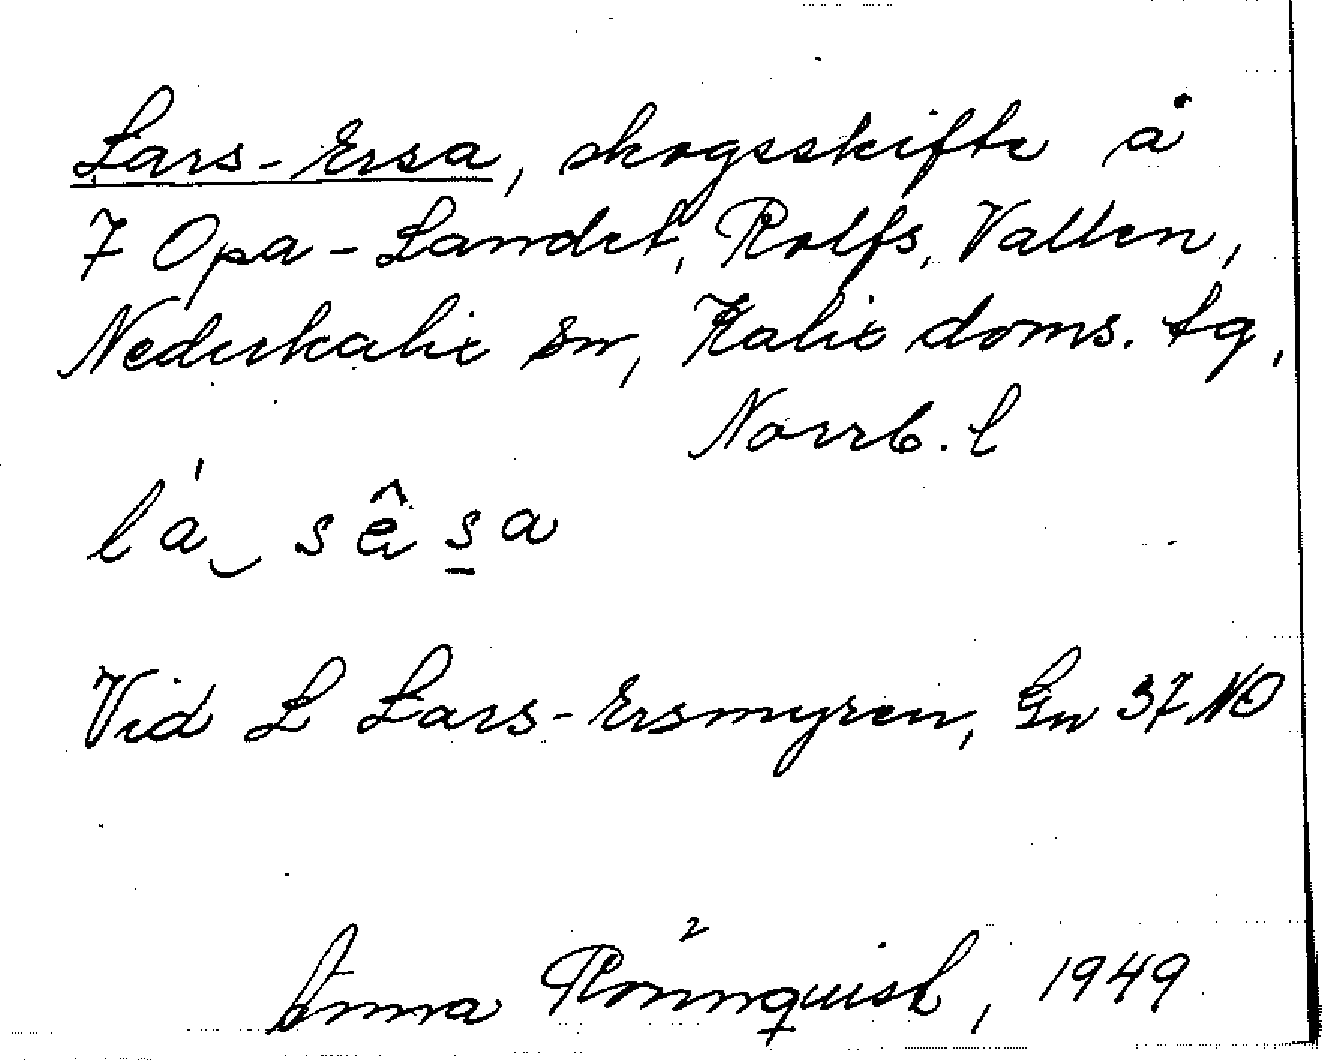 Lars-Ersa, skogsskifte å
7 Opa-Landet, Rolfs, Vallen,
Nederkalix sn, Kalix doms. tg,
Norrb. l
lá͜ sê̱s̱a
Vid L Lars-Ersmyren, Gn 37 NO
Anna Rönnquist, 1949